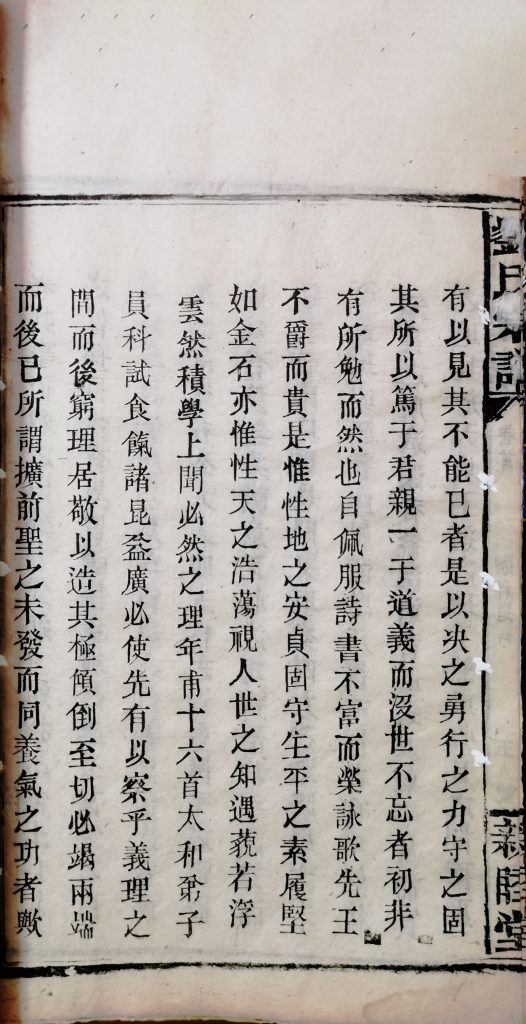 氏宗譜
親睦堂
有以見其不能已者是以决之勇行之力守之固
其所以篤于君親一于道義而沒世不忘者初非
有所勉而然也自佩服詩書不富而榮詠歌先王
不爵而貴是惟性地之安貞固守生平之素履堅
如金石亦惟性天之浩蕩視人世之知遇藐若浮
雲然積學上聞必然之理年甫十六首太和弟子
員科試食餼諸昆益廣必使先有以察乎義理之
間而後窮理居敬以造其極傾倒至切必竭兩端
而後已所謂擴前聖之未發而同養氣之功者歟